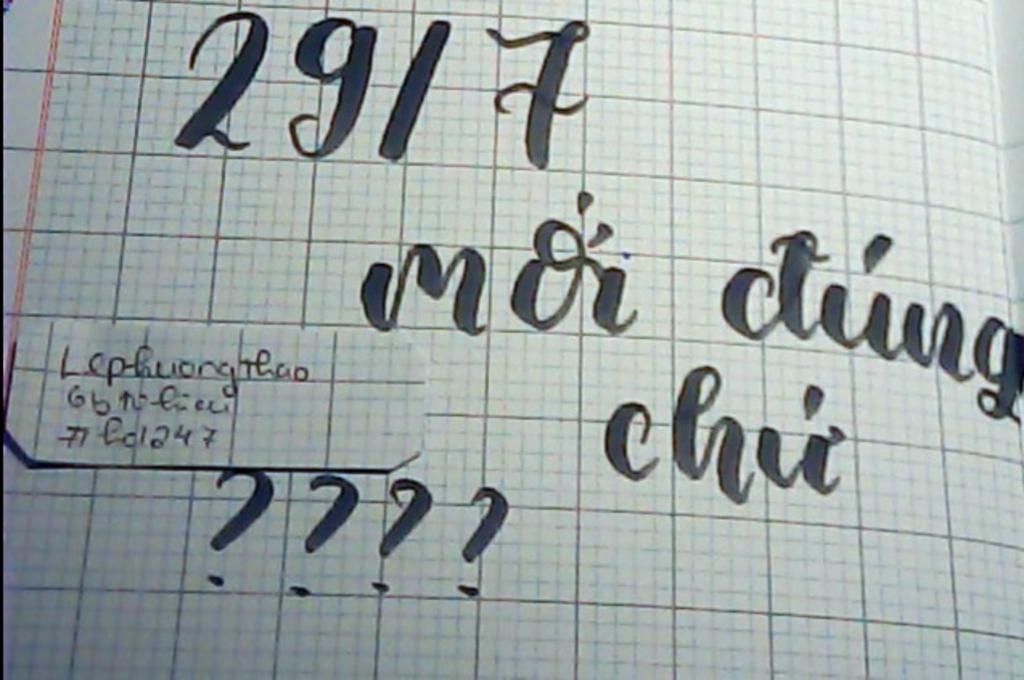 29/7
mới đúng
chứ
Lephuongthao
hd1247
????